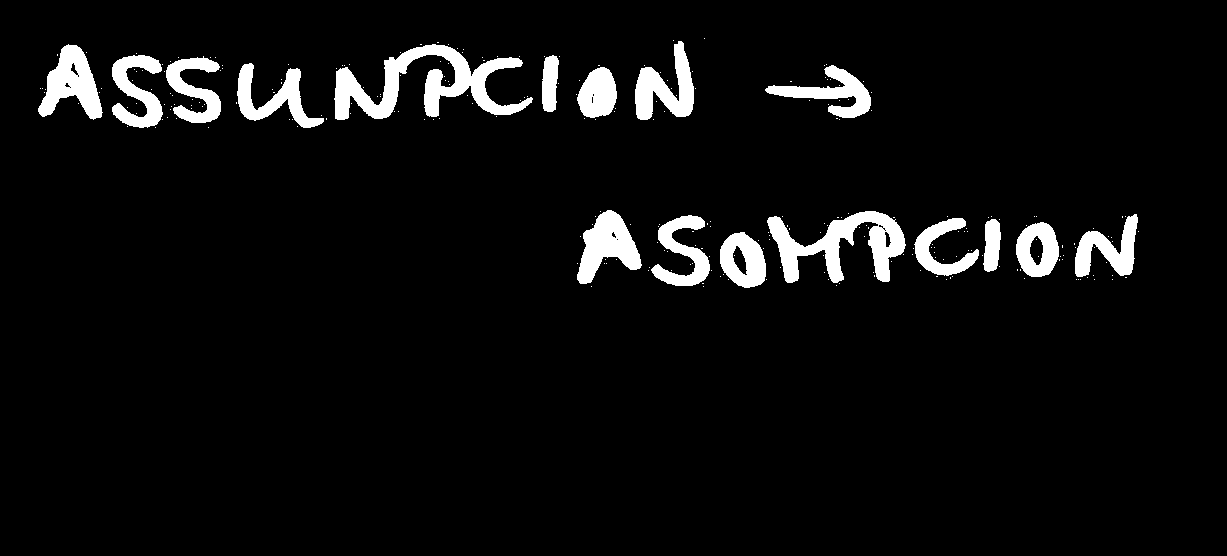 ASSUNPCION →
ASOMPCION